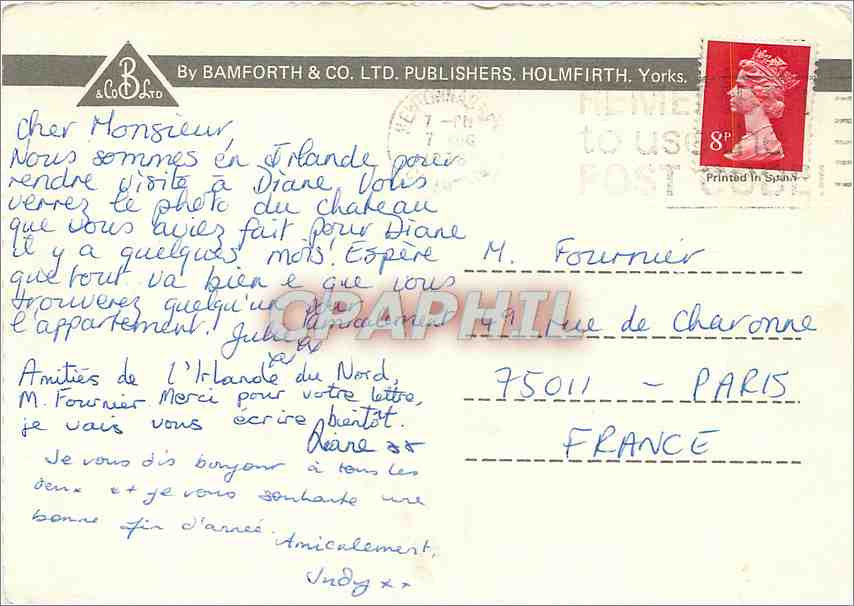 B
& Co LTD
By BAMFORTH & CO. LTD. PUBLISHERS. HOLMFIRTH, Yorks.
8P
Printed in Spain
7 - PM
7
to use
POST
Cher Monsieur,
Nous sommes en Irlande pour
rendre visite à Diane Vous
verrez le photo du chateau
que vous aviez fait pour Diane
il y a quelques mois! Espère
que tout va bien e que vous
trouverez quelqu'un pour
l'appartement! amicalement
Amitiés de l'Irlande du Nord,
M. Fournier Merci pour votre lettre,
je vais vous écrire bientôt.
Diane xx
Je vous dis bonjour à tous les
deux xx je vous souhaite une
bonne fin d'année.
Amicalement,
Judy xx
M. Fournier
49 rue de Charonne
75011 - PARIS
FRANCE
CPAPHIL